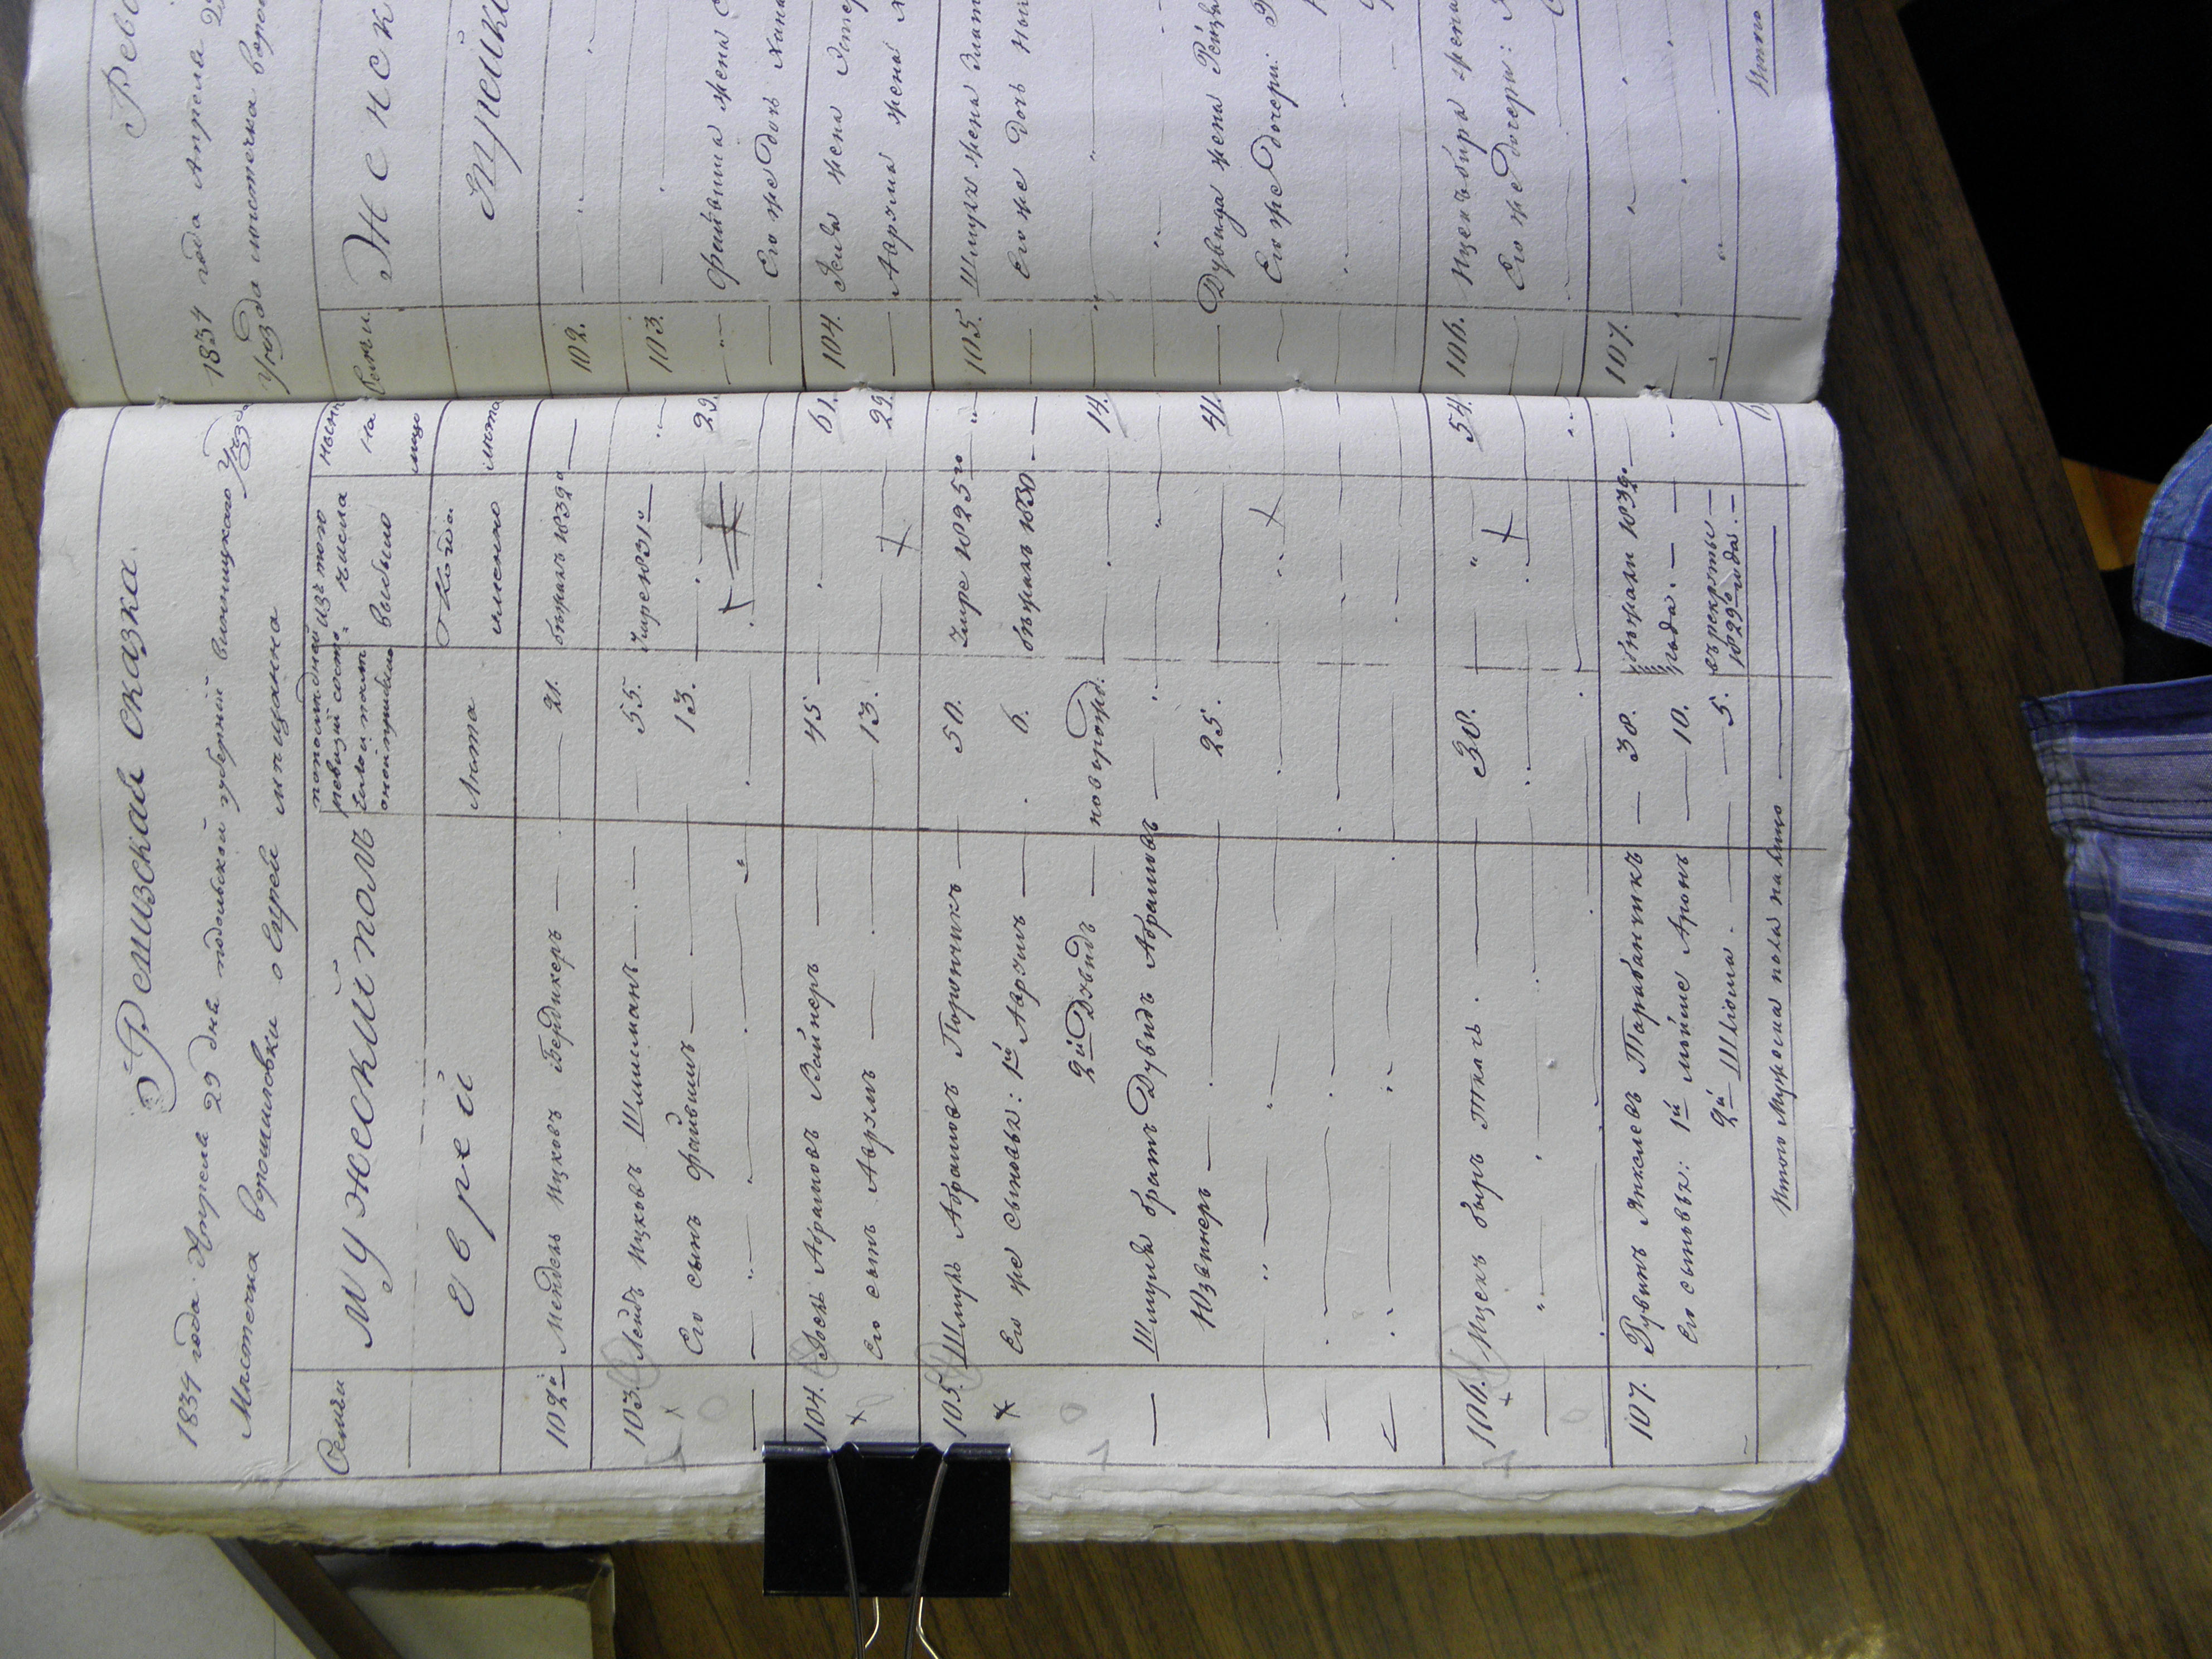 Ревизская сказка.
1834 года Апреля 29 дня подольской губернии винницкого уезда
Местечка ворошиловки о Еврей мещанна
Семьи
Мужеский полъ
по последней ревизии состояло и после оной прибыло
изъ того числа выбыло
ныне на лицо
Еврей
Лета
Когда именно
лета
102й Мендель Ицковъ Бердикеръ — 21. бежалъ 1832го —
103. Лейбъ Ицковъ Шлиманъ — 55. умре 1831го — „
Его сынъ Файвишъ — 13. — 29.
104. Іосль Абрамовъ Вайнеръ — 45 — 61.
Его сынъ Аврумъ — 13. — 29
105. Шмуль Абрамовъ Портничкъ — 50. Умре 1825го „
Его же сыновья: 1й Аврумъ — 6. бежалъ 1830 —
2й Дувидъ — новорожд: — 14.
Шмуля братъ Дувидъ Абрамовъ —
Юзвинеръ — 25. — 41.
106. Ицекъ беръ Ткачъ. — 38. — 54.
107. Рувинъ Янкелевъ Тарабанчикъ — 38. бежали 1832го
Его сыновья: 1й мойше Аронъ — 10. года. —
2й Шліома. — 5. въ рекруты 1829го года. —
Итого Мужеска пола на лицо
Реви
1834 года Апреля 29
Уезда местечка воро
Семьи.
Женск
102.
103.
Файвиша жена
Его же дочь Хина
104. Іосля жена Эстер
Аврума жена
105. Шмуля жена Злат
Его же дочь
Дувида жена Рейзя
Его же дочери:
106. Ицекъ бера жена
Его же дочери:
107.
Итого